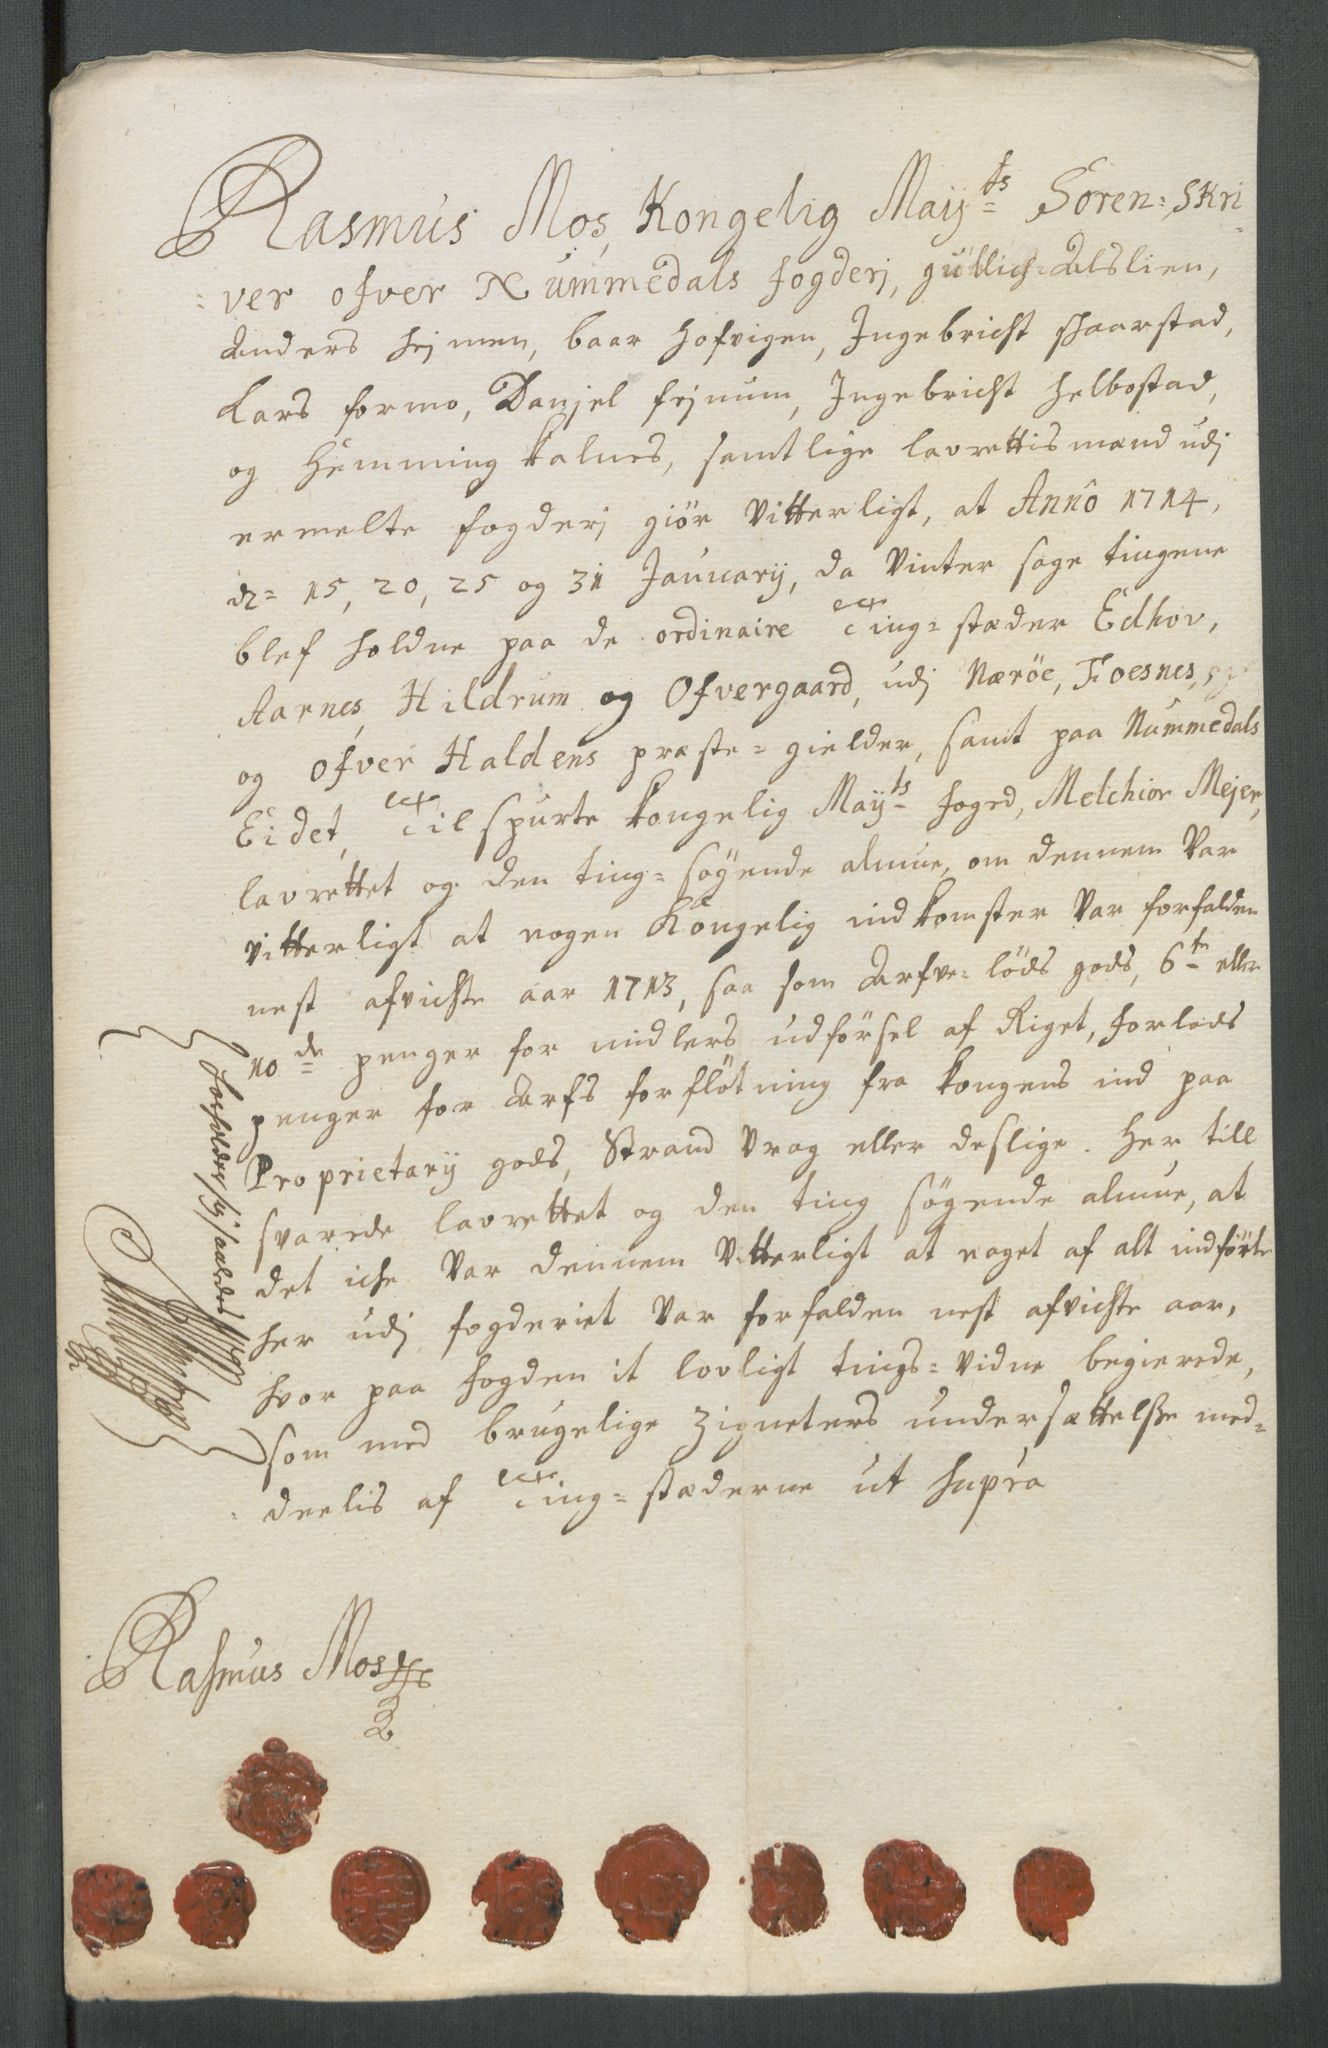 Rasmus Mos, Kongelig Mayts Soren-Skri-
ver ofver Nummedals fogderj, gullich Alslien,
Anders hejmen, baar hofvigen, Ingebricht skaarstad,
Lars formo, Danjel fejnum, Ingebricht helbostad,
og Hemming Kalnes, samtlige lavrettismænd udj
ermelte fogderj giör Vitterligt, at Anno 1714,
d= 15, 20, 25 og 31 Januarij, da Vinter sage tingene
blef holdne paa de ordinaire Ting-stæder Edhov,
Aarnes, Hildrum og Ofvergaard, udj Nærøe, Foesnes,
og Ofver Haldens præste-gielder, samt paa Nummedals
Eidet, Tilspurte Kongelig Mayts foged, Melchior Mejer,
lavrettet og den ting-søgende almue, om dennem Var
Vitterligt at nogen Kongelig indkomster Var forfalden
nest afvichte aar 1713, saa som Arfve-løds gods, 6te eller
10de penger for midlers udførsel af Riget, forlods
penger for Arfs forflötning fra Kongens ind paa
Proprietarij gods, Strand Vrag eller deslige. Her till
svarede lavrettet og den ting søgende almue, at
det iche Var dennem Vitterligt at noget af alt indförte
her udj fogderiet Var forfalden nest afvichte aar,
hvor paa fogden it lovligt tings-Vidne begierede,
som med brugelige Zigneters undersættelsse med-
deelis af Ting-stæderne ut supra
Rasmus Mos
forholder sig saaledes